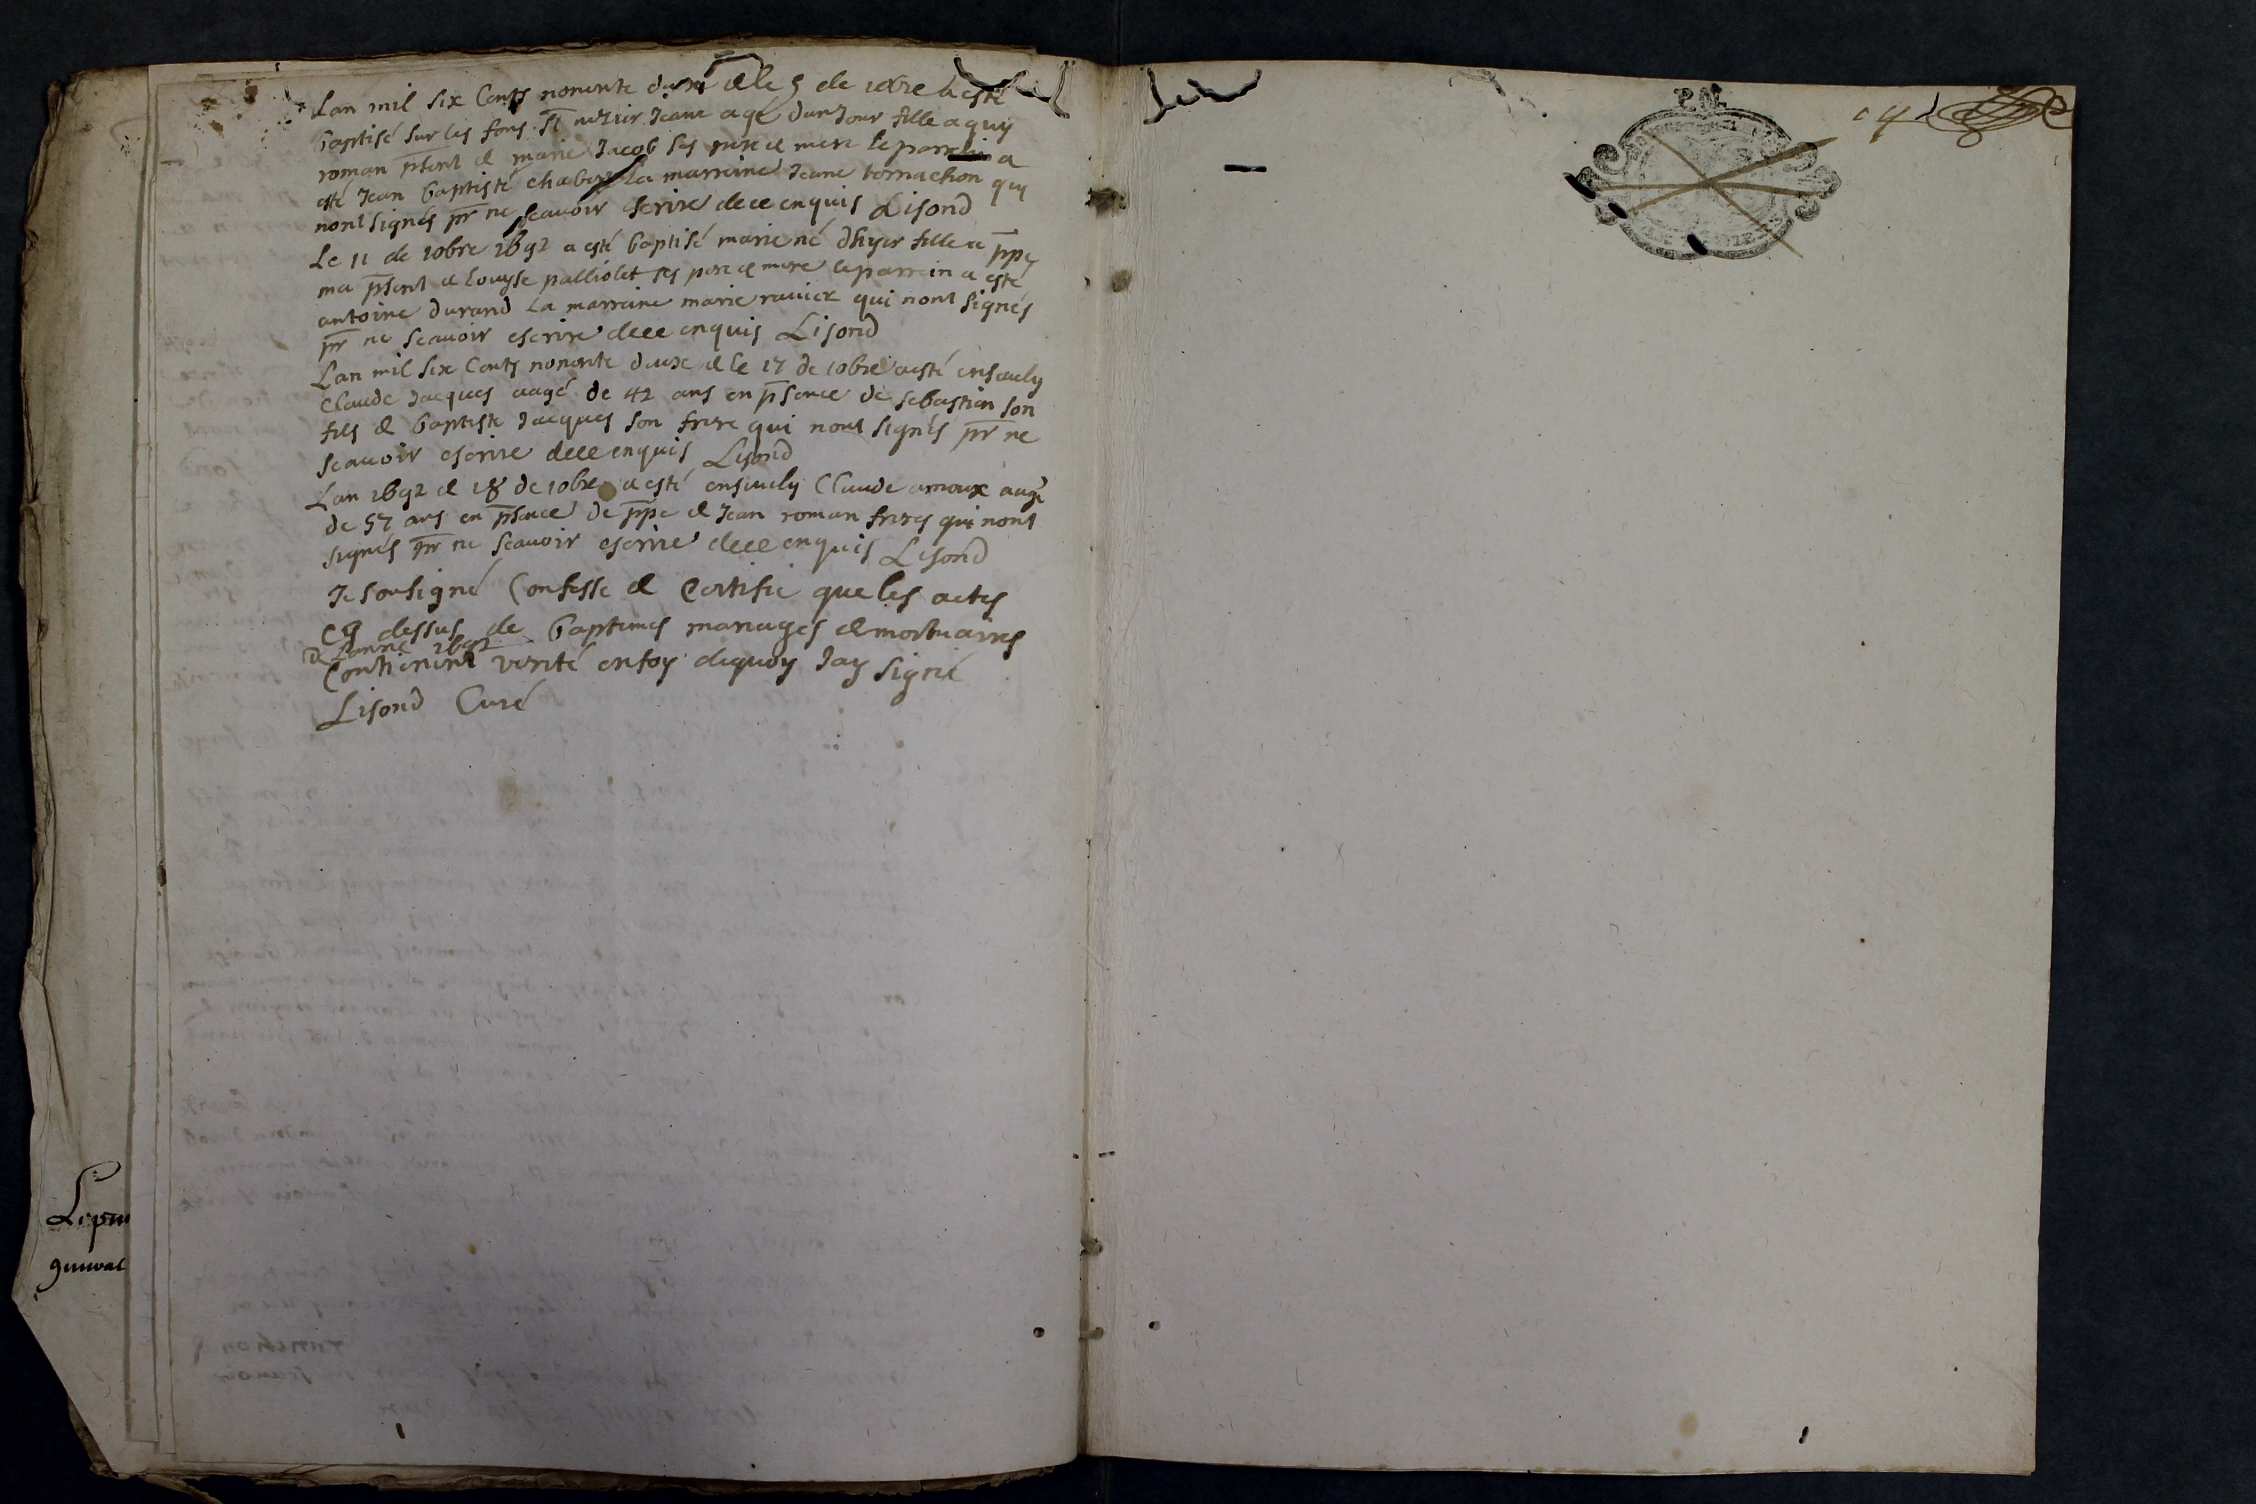 Lan mil six Cents nonente deux & le 5 de 10bre a esté
baptisé sur les fons Jeane agé dun Jour fille a guy
roman pñsent & marie Jacob ses pere & mere le parrein a
esté Jean baptiste chabert La marreine Jeane tornachon qui
nont signés pr ne scavoir escrire dece enquis Lisond
Le 11 de 10bre 1692 a esté baptisé marie né dhyer fille a ppe
ma pñsent & Louyse palliolet ses pere & mere le parrein a esté
antoine durand La marreine marie ravier qui nont signés
pr ne scavoir escrire dece enquis Lisond
Lan mil six Cents nonente deux & le 17 de 10bre a esté ensevely
Claude Jacques aagé de 42 ans en pñsence de sebastien son
fils & baptiste Jacques son frere qui nont signés pr ne
scavoir escrire dece enquis Lisond
Lan 1692 & 18 de 10bre a esté ensevely Claude arnoux aagé
de 57 ans en pñsence de ppe & Jean roman freres qui nont
signés pr ne scavoir escrire dece enquis Lisond
Je sousigné Confesse & Certifie que les actes
Cy dessus de baptemes mariages & mortuaires
de Lanneé 1692
Contienent verité en foy dequoy Jay signé
Lisond Curé